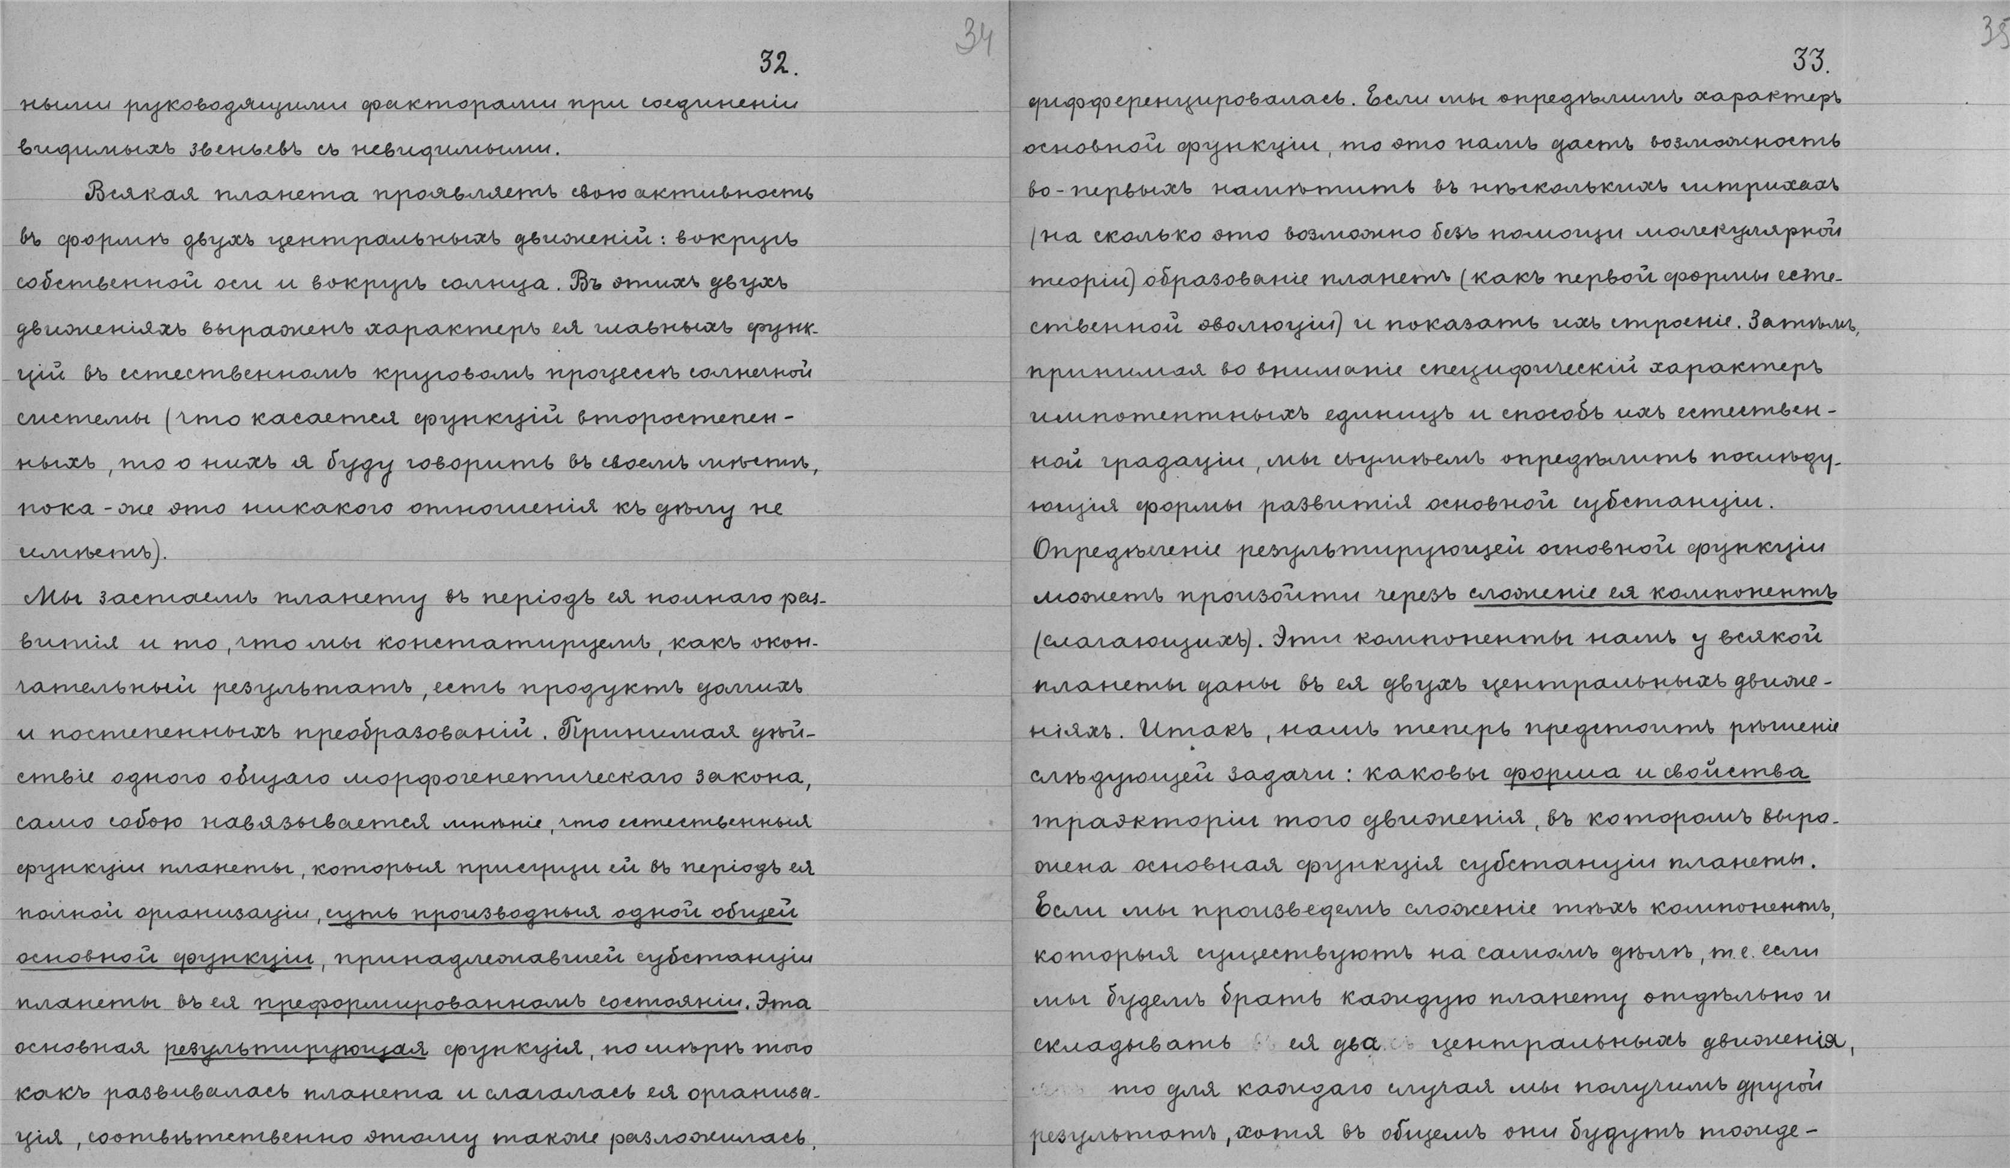 34
32.
ными руководящими факторами при соединеніи
видимыхъ звеньевъ съ невидимыми.
Всякая планета проявляетъ свою активность
въ формѣ двухъ центральныхъ движеній: вокругъ
собственной оси и вокругъ солнца. Въ этихъ двухъ
движеніяхъ выраженъ характеръ ея главныхъ функ-
цій въ естественномъ круговомъ процессѣ солнечной
системы (что касается функцій второстепен-
ныхъ, то о нихъ я буду говорить въ своемъ мѣстѣ,
пока-же это никакого отношенія къ дѣлу не
имѣетъ).
Мы застаемъ планету въ періодъ ея полнаго раз-
витія и то, что мы констатируемъ, какъ окон-
чательный результатъ, есть продуктъ долгихъ
и постепенныхъ преобразованій. Принимая дѣй-
ствіе одного общаго морфогенетическаго закона,
само собою навязывается мнѣніе, что естественныя
функціи планеты, которыя присущи ей въ періодъ ея
полной организаціи, суть производныя одной общей
основной функціи, принадлежавшей субстанціи
планеты въ ея преформированномъ состояніи. Эта
основная результирующая функція, по мѣрѣ того
какъ развивалась планета и слагалась ея организа-
ція, соотвѣтственно этому также разложилась,
35
33.
дифференцировалась. Если мы опредѣлимъ характеръ
основной функціи, то это намъ дастъ возможность
во-первыхъ намѣтить въ нѣсколькихъ штрихахъ
(на сколько это возможно безъ помощи молекулярной
теоріи) образованіе планетъ (какъ первой формы есте-
ственной эволюціи) и показать ихъ строеніе. Затѣмъ,
принимая во вниманіе специфическій характеръ
импотентныхъ единицъ и способъ ихъ естествен-
ной градаціи, мы съумѣемъ опредѣлить послѣду-
ющія формы развитія основной субстанціи.
Опредѣленіе результирующей основной функціи
можетъ произойти черезъ сложеніе ея компонентъ
(слагающихъ). Эти компоненты намъ у всякой
планеты даны въ ея двухъ центральныхъ движе-
ніяхъ. Итакъ, намъ теперь предстоитъ рѣшеніе
слѣдующей задачи: каковы форма и свойства
траэкторіи того движенія, въ которомъ выра-
жена основная функція субстанціи планеты.
Если мы произведемъ сложеніе тѣхъ компонентъ,
которыя существуютъ на самомъ дѣлѣ, т.е. если
мы будемъ брать каждую планету отдѣльно и
складывать ея два центральныхъ движенія,
то для каждаго случая мы получимъ другой
результатъ, хотя въ общемъ они будутъ тожде-